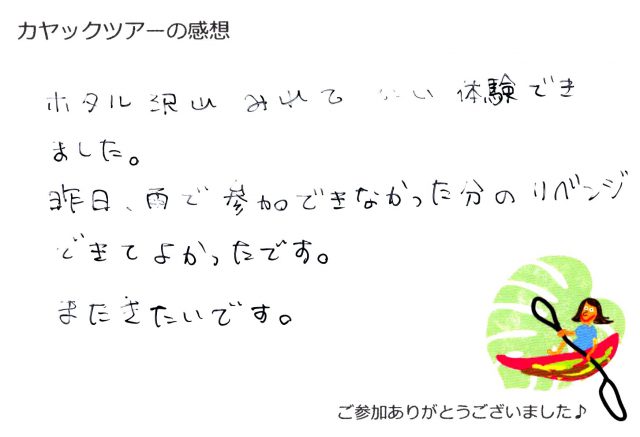 カヤックツアーの感想
ホタル沢山 みれて 体験でき
ました。
昨日、雨で参加できなかった分のリベンジ
できてよかったです。
またきたいです。
ご参加ありがとうございました♪